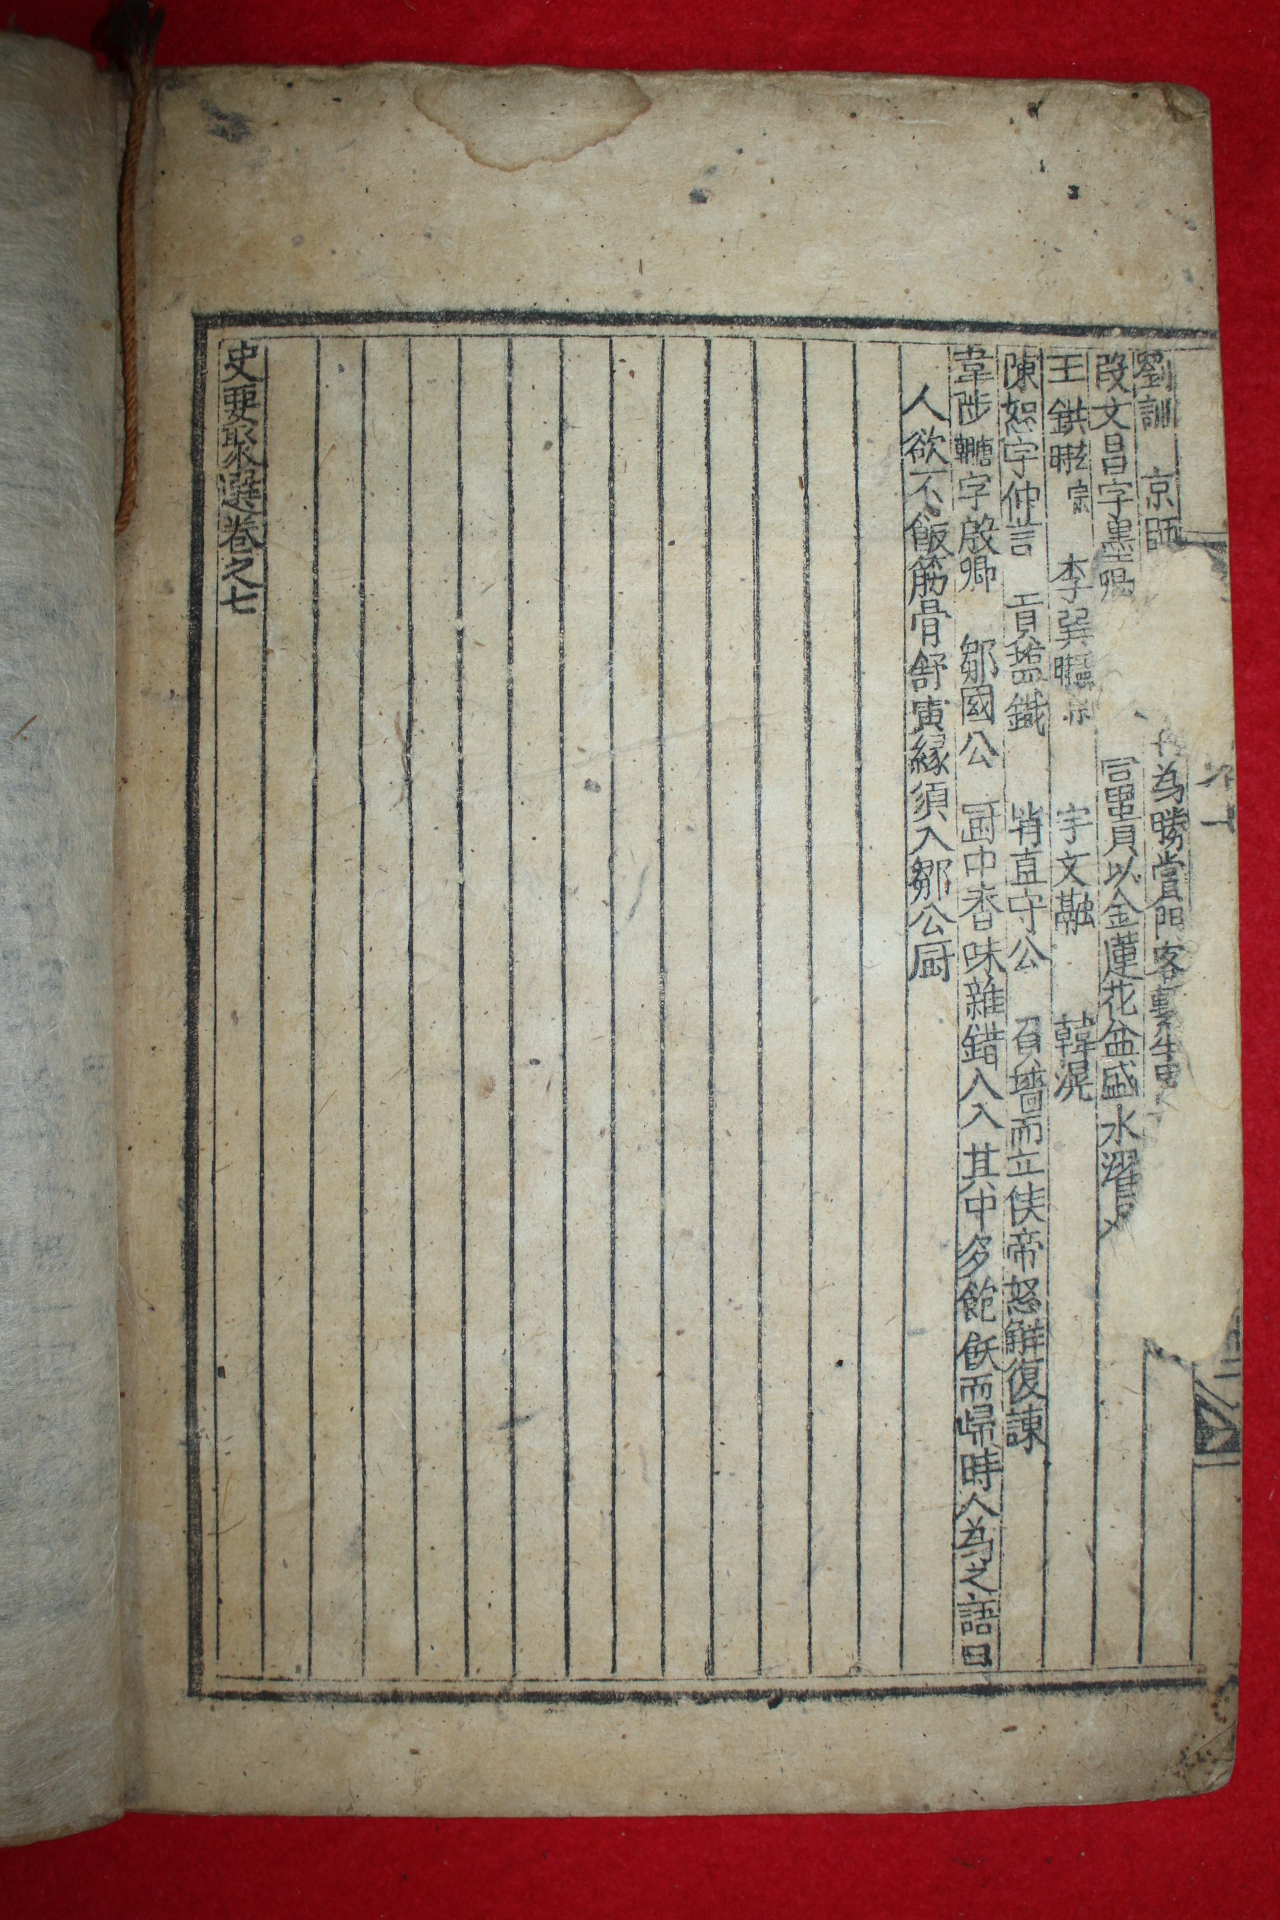 劉訓 京師 為勝賞門客繫牛
段文昌字墨卿 貴以金蓮花盆盛水濯
王鉷 宗 李巽 宇文融 韓滉
陳恕字仲言 貢塩鐵 背直守公 負墻而立使帝怒解復諫
韋陟 字殷卿 鄒國公 厨中香味雜錯人入其中多飽飫而歸時人為之語曰
人欲不飯筋骨舒夤緣須入鄒公厨
史要聚選卷之七